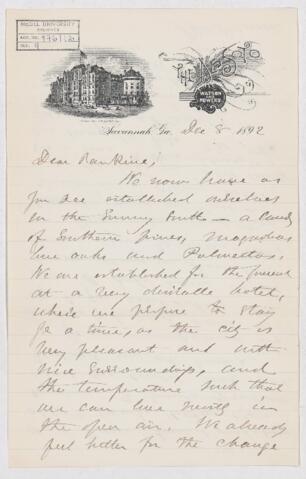 McGILL UNIVERSITY
ARCHIVES
ACC. NO.
REF.
THE DE SOTO
WATSON
AND
POWERS
Savannah, Ga. Dec 8 1892
Dear Rankine,
We now have as
you see established ourselves
in the Sunny South – a land
of Southern pines, Magnolias
live oaks and Palmettos.
We are established for the present
at a very desirable hotel,
where we purpose to stay
for a time, as the city is
very pleasant and with
nice surroundings, and
the temperature such that
we can live nearly in
the open air. We already
feel better for the change